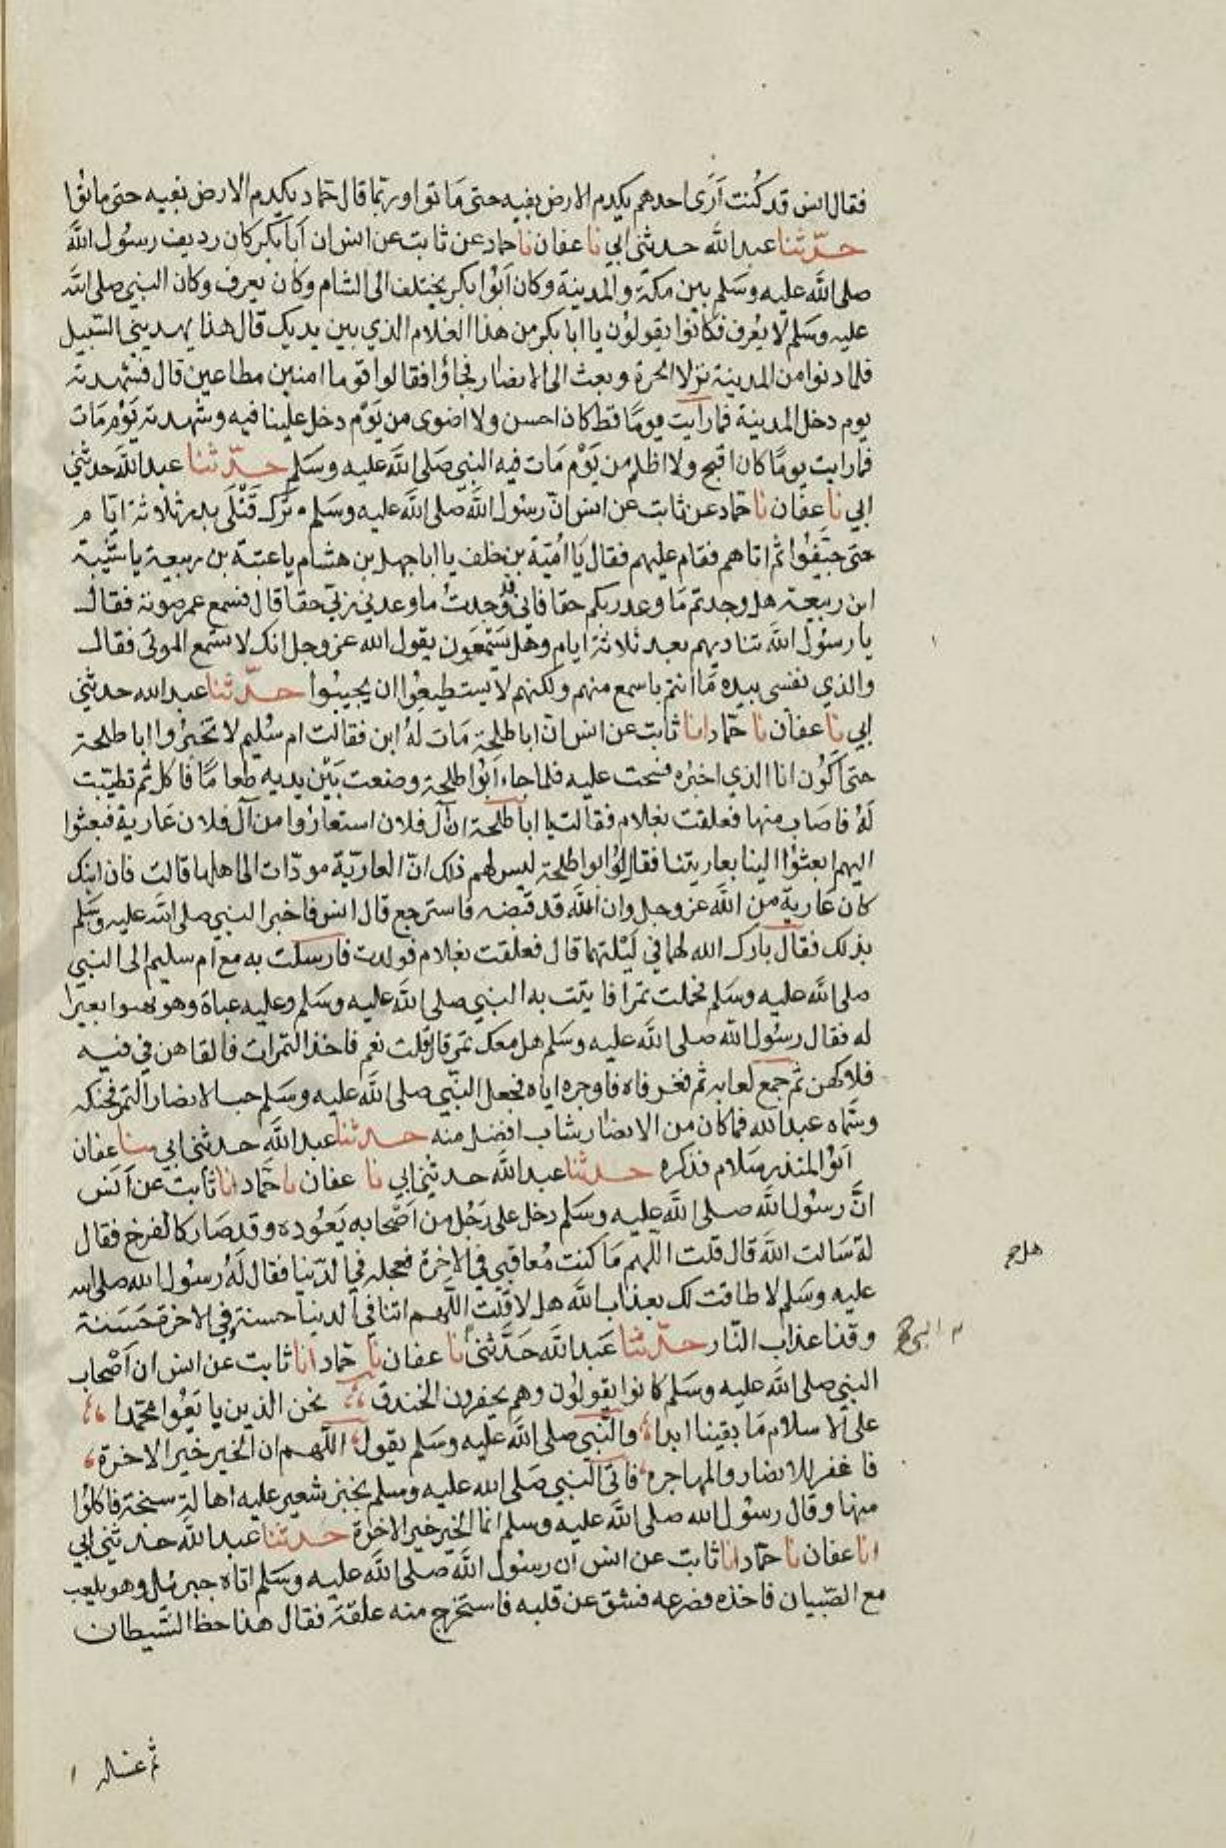 فقال انس قد كُنت اَرَى احدهم يكدم الارض بفيه حتى مَاتوا وربّما قال حمّاد يكدم الارض بفيه حتى ماتُوا
حدّثنا عبد الله حدثنى ابي نا عفان نا حماد عن ثابت عن انس ان اَبا بكر كان رديف رسُول الله
صلى الله عليه وسَلم بين مكة والمدينة وكان اَبُوا بكر يختلف الى الشام وكان يعرف وكان النبي صلى الله
عليه وسَلم لا يُعرف فكانُوا يقولوُن يا ابا بكر من هذا الغلام الذي بين يديك قال هذا يهديني السّبيل
فلما دنوا من المدينة نزلا الحرة وبعث الى الانصار فجاؤا فقالوا قوما امنين مطاعين قال فشهدته
يوم دخل المدينة فما رأيت يومًا قط كان احسن ولا اضوى من يَوْم دخل علينا فيه وشهدته يَوْم مَات
فما رايت يومًا كان اقبح ولا اظلم من يَوْم مَات فيه النبي صَلى الله عليه وسَلم حدّثنا عبد الله حدثني
ابي نا عفان نا حمّاد عن ثابت عن انس انّ رسُول الله صلى الله عليه وسَلم ترك قَتْلَى بدر ثلاثة ايّام
حتى جَيّفُوا ثمّ اتاهم فقام عليهم فقال يَا اُميّة بن خلف يا ابا جهل بن هشام يا عتبة بن ربيعة يا شَيْبة
ابن ربيعة هل وجدتم مَا وعد ربكم حقا فاني قد وُجدتُ ما وعدني ربّي حقا قال فسمع عمر صوته فقال
يا رسُول الله تناديهم بعد ثلاثة ايام وهل يَسْمعَون يقول الله عز وجل انك لا تسمع الموتى فقال
والذي نفسى بيده مَا انتم باسمع منهم ولكنهم لا يستطيعُوا ان يجيبُوا حدّثنا عبد الله حدثني
ابي نا عفان نا حمّاد انا ثابت عن انس انّ ابا طلحة مَات لهُ ابن فقالت ام سُليم لا تخبرُوا ابا طلحة
حتى اَكُون انا الذي اخبره فسجت عليه فلما جاء اَبُوا طلحة وضعت بَيْن يديه طعامًا فاكل ثم تطيّبت
لهُ فاصاب منها فعلقت بغلام فقالت يا ابا طلحة انّ آل فلان استعارُوا من آل فلان عَارية فبعثوا
اليهم ابعثُوا الينا بعاريتنا فقال ابوا طلحة ليس لهم ذلك انّ العاريّة مودّات الى اهلها قالت فان ابنك
كان عَاريةَ من الله عز وجل وان الله قد قبضه فاسترجع قال انس فاخبر النبي صلى الله عليه وسَلم
بذلك فقال بارك الله لهما في لَيْلتهما قال فعلقت بغلام فولدت فارسلت به مع ام سليم الى النبي
صلى الله عليه وسَلم فحملت تمرا فاتيت به النبي صلى الله عليه وسَلم وعليه عباة وهو يهنوا بعيرًا
له فقال رسُول الله صلى الله عليه وسَلم هل معك تمر قال قلت نعم فاخذ التمرات فالقاهن في فيه
فلاكهن ثم جمع لعابه ثم فغر فاه فاوجره اياه فجعل النبّي صلى الله عليه وسَلم حب الانصار التمر فحنكه
وسَمّاه عبد الله فما كان من الانصار شاب افضل منه حدثنا عبد الله حدثنى ابي سنا عفان
اَبُو المنذر سلام فذكره حدثنا عبد الله حدثني ابي نا عفان نا حمّاد انا ثابت عن اَنَس
انَّ رسُول الله صلى الله عليه وسَلم دخل على رَجُل من اَصْحابه يَعُوده وقد صَار كالفرخ فقال
لهُ سَالت الله قال قلت اللّهم مَا كنت مُعاقبي في الاخرة فعجله في الدّنيا فقال لهُ رسُول الله صلى الله
عليه وسَلم لا طاقت لك بعذاب الله هل لا قلت اللَّهم اتنا في الدنيا حسنة وفي الاخرة حَسَنة
وقنا عذاب النّار حدّثنا عَبد الله حَدَّثنى نا عفان نا حماد انا ثابت عن انس ان اَصْحاب
النبي صلى الله عليه وسَلم كانوا يقولوُن وهم يحفرون الخندق نحن الذين بايَعُوا محمّدا
على الاسلام مَا بقينا ابدا والنَبي صلى الله عليه وسَلم يقول اللّهم ان الخير خير الاخرة
فاغفر للانصار والمهاجره فاتى النبي صَلى الله عليه وسلم بخبز شعير عليه اهالة سنخة فاكلوُا
منها وقال رسُول الله صلى الله عليه وسلم انما الخير خير الاخرة حدثنا عبد الله حدثني ابي
انا عفان نا حمّاد انا ثابت عن انس ان رسُول الله صلى الله عليه وسَلم اتاه جبرئيل وهو يلعب
مع الصّبيان فاخذه فصرعه فشق عن قلبه فاستخرج منه علقة فقال هذا حظ الشّيطان
ثم غسله